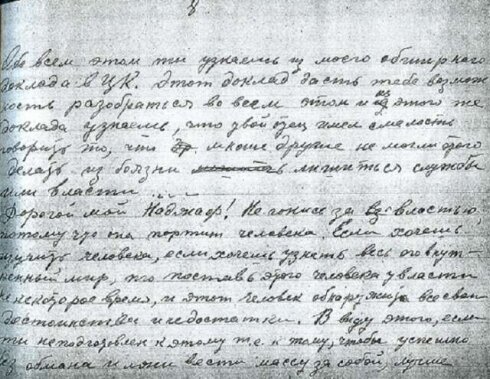 8
Обо всем этом ты узнаешь из моего обширного
доклада в ЦК. Этот доклад дасть тебе возмож
ность разобраться во всем этом и из этого же
доклада узнаешь, что твой отец имел смелость
говорить то, что многие другие не могли этого
делать из боязни лишиться службы
или власти ....
Дорогой мой Наджаф! Не гонись за властью,
потому что она портит человека. Если хочешь
изучить человека, если хочешь узнать весь его внут-
ренный мир, то поставь этого человека у власти
на некоторое время, и этот человек обнаружит все свои
достоинства и недостатки. В виду этого, если
ты не подготовлен к этому т.е. к тому, чтобы успешно
без обмана и лжи вести массу за собой, лучше